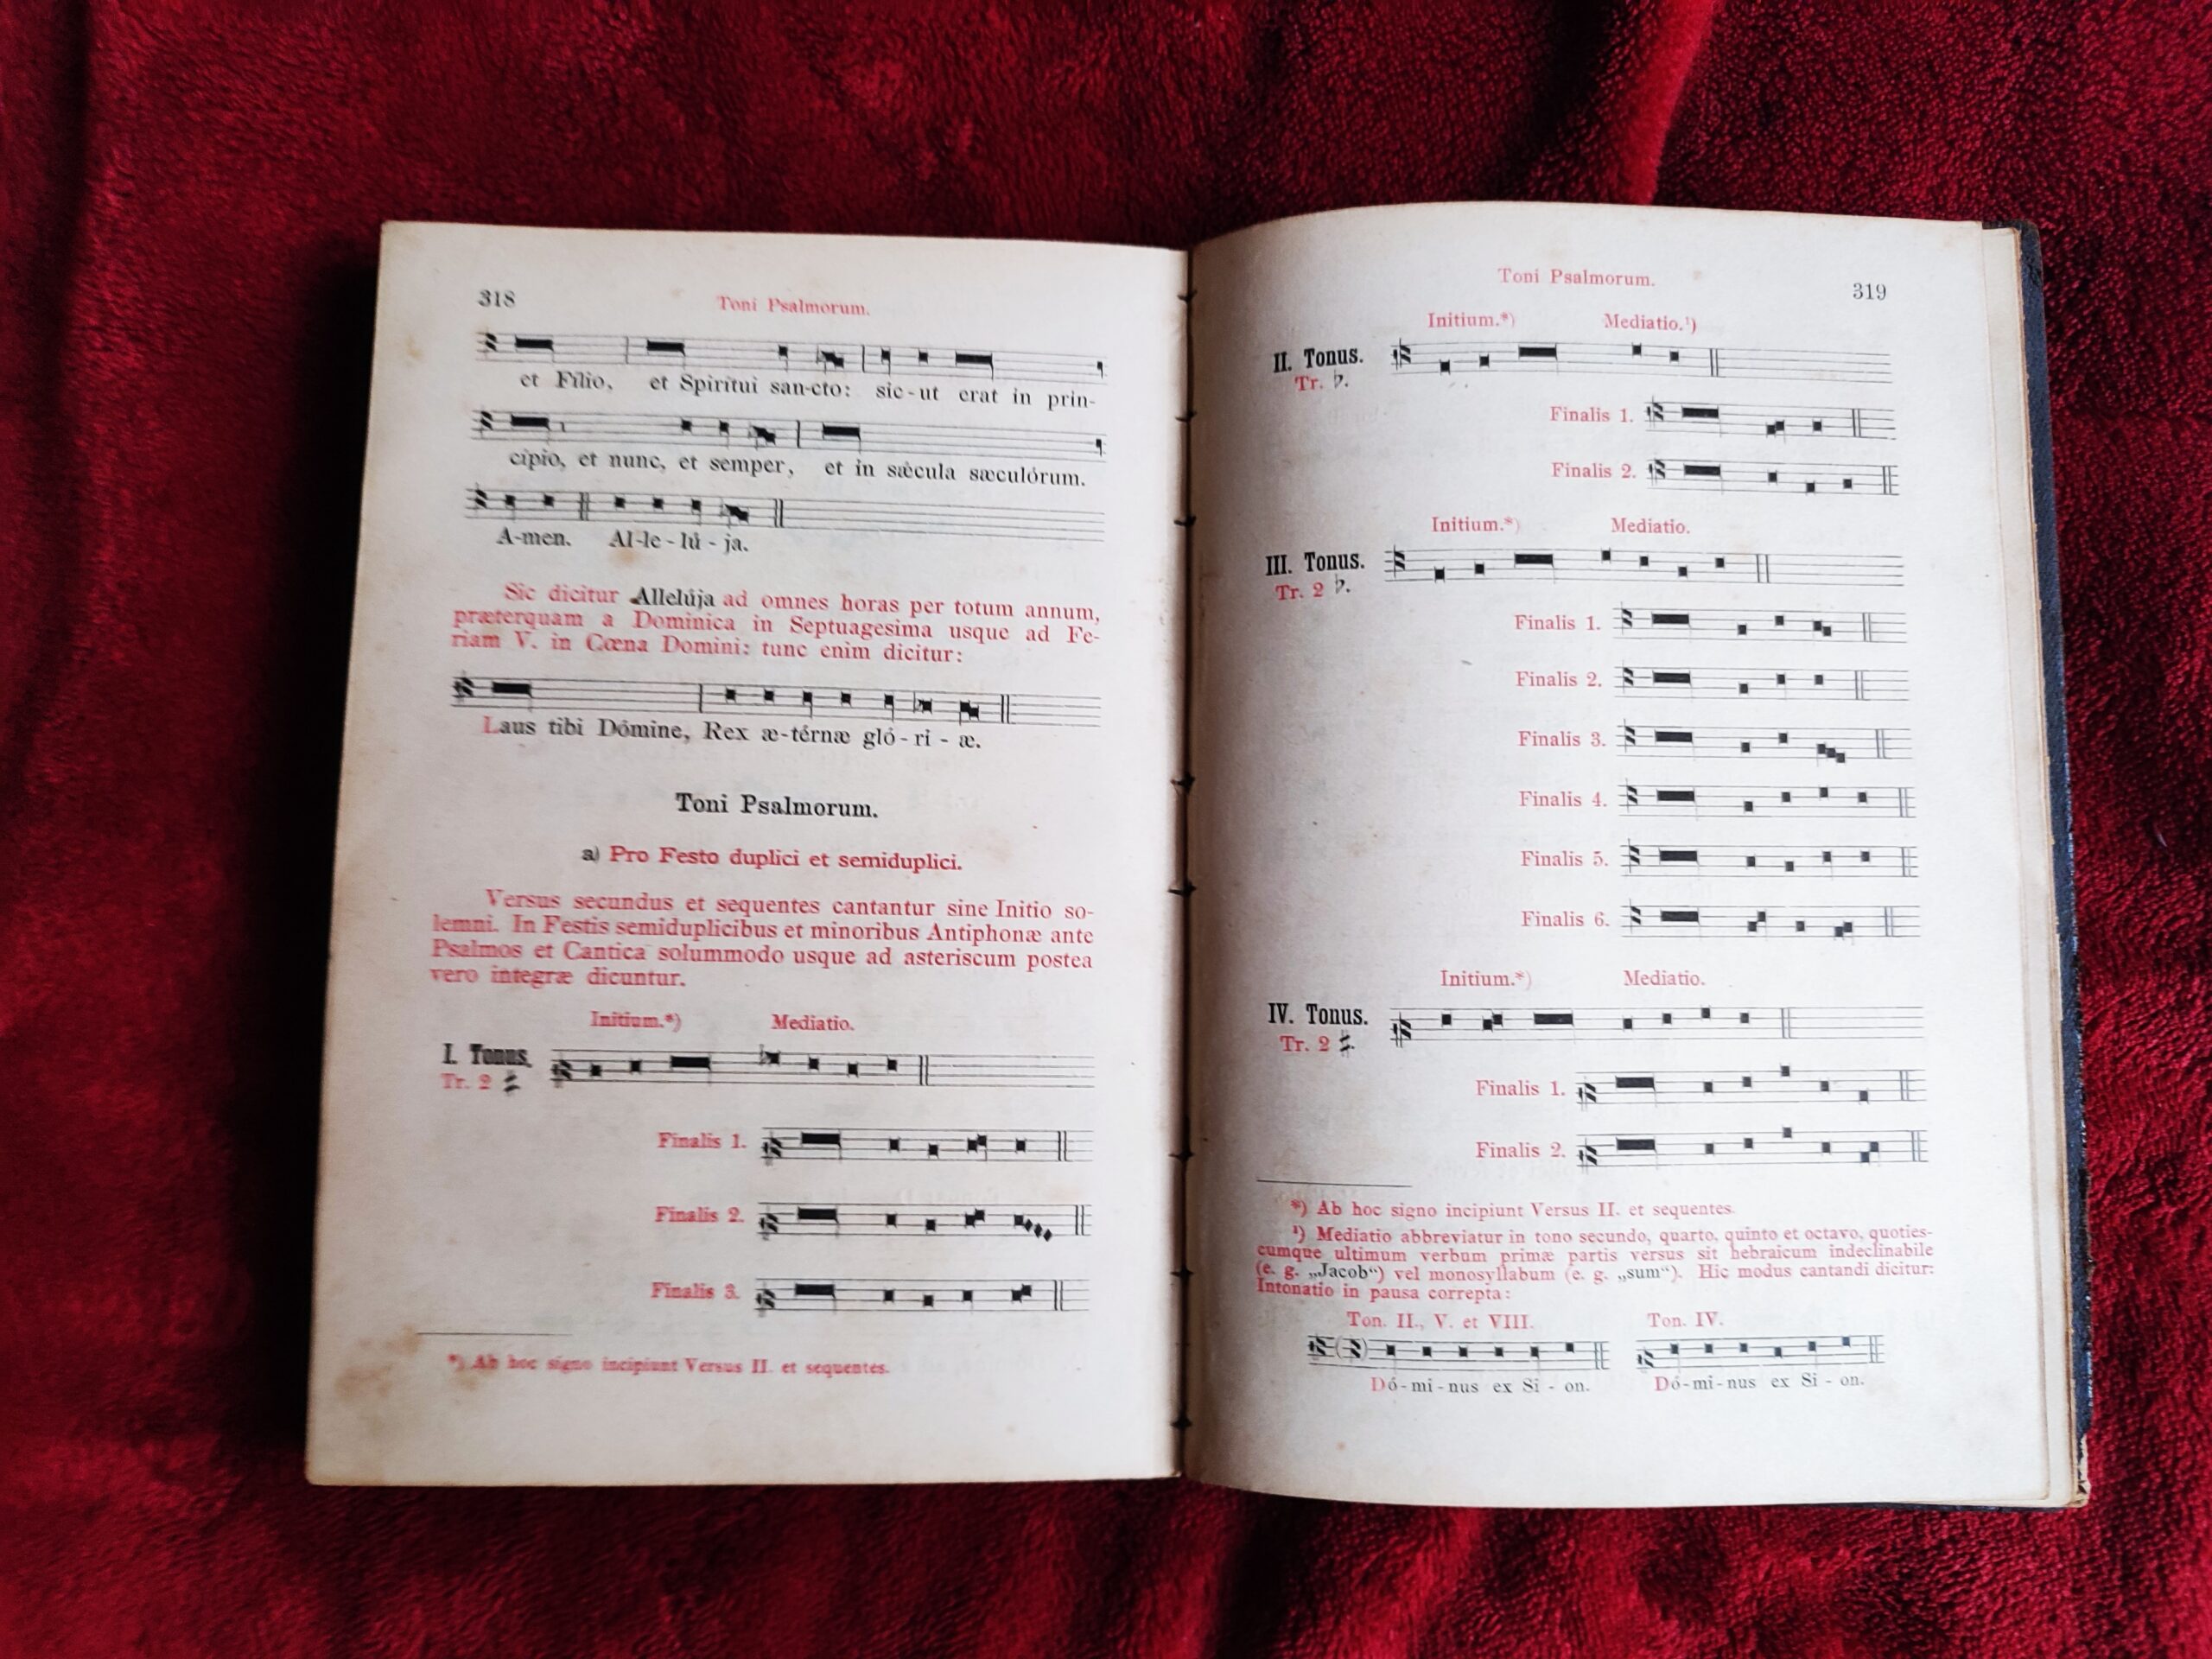 318
Toni Psalmorum.
et Fílio, et Spirítui san-cto: sic-ut erat in prin-
cípio, et nunc, et semper, et in sǽcula sæculórum.
A-men. Al-le-lú-ja.
Sic dicitur Allelúja ad omnes horas per totum annum,
præterquam a Dominica in Septuagesima usque ad Fe-
riam V. in Cœna Domini: tunc enim dicitur:
Laus tibi Dómine, Rex æ-térnæ gló-ri-æ.
Toni Psalmorum.
a) Pro Festo duplici et semiduplici.
Versus secundus et sequentes cantantur sine Initio so-
lemni. In Festis semiduplicibus et minoribus Antiphonæ ante
Psalmos et Cantica solummodo usque ad asteriscum postea
vero integræ dicuntur.
Initium.*) Mediatio.
I. Tonus.
Tr. 2 ♯.
Finalis 1.
Finalis 2.
Finalis 3.
*) Ab hoc signo incipiunt Versus II. et sequentes.
Toni Psalmorum.
319
Initium.*) Mediatio.¹)
II. Tonus.
Tr. ♭.
Finalis 1.
Finalis 2.
Initium.*) Mediatio.
III. Tonus.
Tr. 2 ♭.
Finalis 1.
Finalis 2.
Finalis 3.
Finalis 4.
Finalis 5.
Finalis 6.
Initium.*) Mediatio.
IV. Tonus.
Tr. 2 ♯.
Finalis 1.
Finalis 2.
*) Ab hoc signo incipiunt Versus II. et sequentes.
¹) Mediatio abbreviatur in tono secundo, quarto, quinto et octavo, quoties-
cumque ultimum verbum primæ partis versus sit hebraicum indeclinabile
(e. g. „Jacob“) vel monosyllabum (e. g. „sum“). Hic modus cantandi dicitur:
Intonatio in pausa correpta:
Ton. II., V. et VIII. Ton. IV.
Dó-mi-nus ex Si-on. Dó-mi-nus ex Si-on.